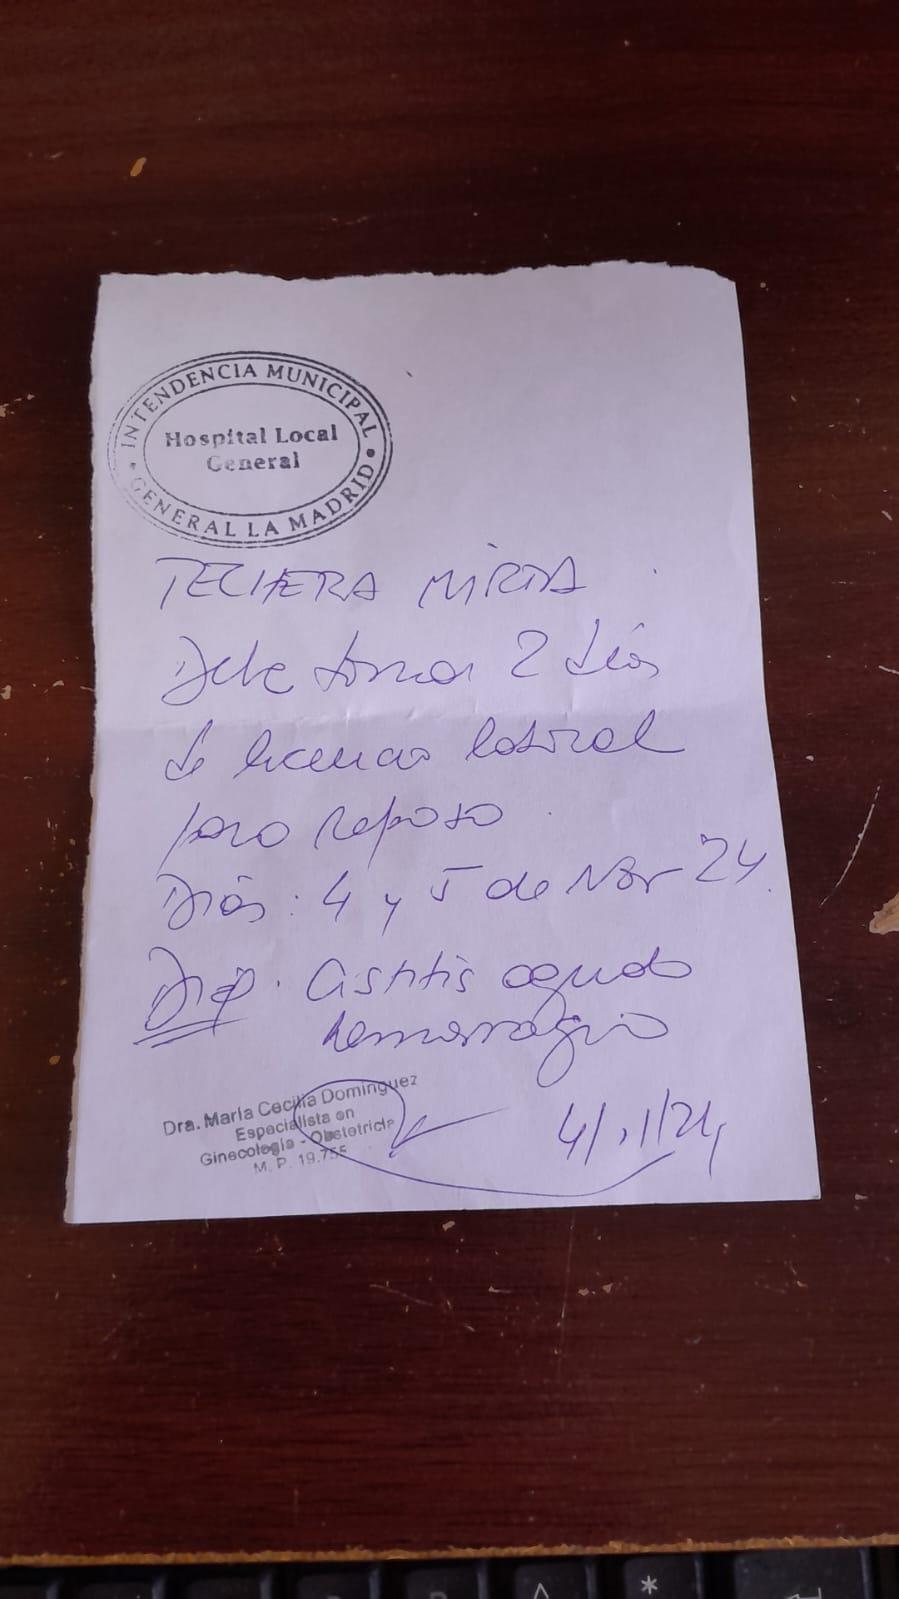 INTENDENCIA MUNICIPAL
Hospital Local
General
GENERAL LA MADRID
TECHERA MIRTA
Debe tomar 2 días
de licencia laboral
para reposo.
Días: 4 y 5 de Nov 24.
Diag. Cistitis aguda
hemorragia
Dra. María Cecilia Dominguez
Especialista en
Ginecología - Obstetricia
M. P. 19.755
4/11/24
*